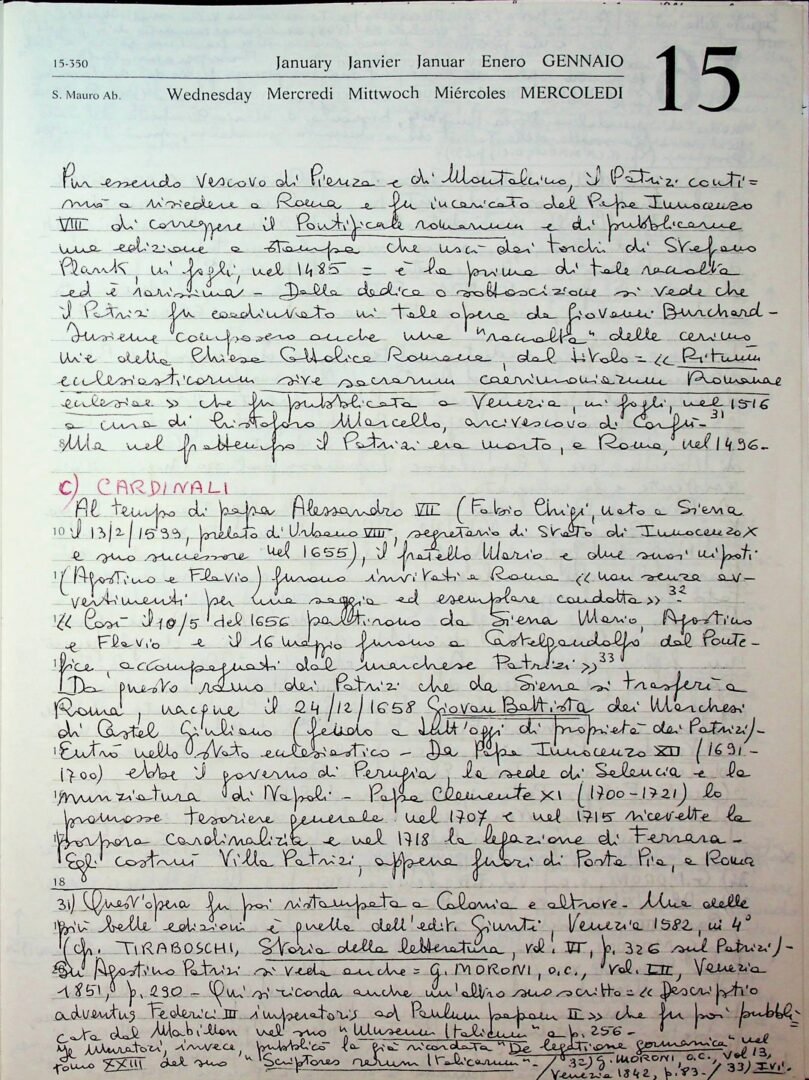 15-350 January Janvier Januar Enero GENNAIO 15
S. Mauro Ab. Wednesday Mercredi Mittwoch Miércoles MERCOLEDI
Pur essendo vescovo di Pienza e di Montalcino, il Patrizi conti=
nuò a risiedere a Roma e fu incaricato dal Papa Innocenzo
VIII di correggere il Pontificale romanum e di pubblicarne
una edizione a stampa che uscì dai torchi di Stefano
Plank, in fogli, nel 1485 = è la prima di tale raccolta
ed è rarissima - Dalla dedica o sottoscizione si vede che
il Patrizi fu coadiuvato in tale opera da Giovanni Burchard -
Insieme composero anche una "raccolta" delle cerimo
nie della Chiesa Cattolica Romana, dal titolo = « Rituum
ecclesiasticorum sive sacrarum caerimoniarum Romanae
eclesiae » che fu pubblicata a Venezia, in fogli, nel 1516
a cura di Cristoforo Marcello, arcivescovo di Corfù - 31
8 Ma nel frattempo il Patrizi era morto, a Roma, nel 1496 -
c) CARDINALI
Al tempo di papa Alessandro VII (Fabio Chigi, nato a Siena
10 il 13/2/1599, prelato di Urbano VIII, segretario di Stato di Innocenzo X
e suo successore nel 1655), il fratello Mario e due suoi nipoti
(Agostino e Flavio) furono invitati a Roma « non senza av-
vertimenti per una saggia ed esemplare condotta » 32
« Così il 10/5 del 1656 partirono da Siena Mario, Agostino
e Flavio e il 16 maggio furono a Castelgandolfo dal Ponte-
fice, accompagnati dal marchese Patrizi » 33
Da questo ramo dei Patrizi che da Siena si trasferì a
Roma, nacque il 24/12/1658 Giovan Battista dei Marchesi
di Castel Giuliano (feudo a tutt'oggi di proprietà dei Patrizi) -
Entrò nello stato eclesiastico - Da Papa Innocenzo XII (1691-
1700) ebbe il governo di Perugia, la sede di Seleucia e la
nunziatura di Napoli - Papa Clemente XI (1700-1721) lo
promosse tesoriere generale nel 1707 e nel 1715 ricevette la
porpora cardinalizia e nel 1718 la legazione di Ferrara -
Egli costruì Villa Patrizi, appena fuori di Porta Pia, a Roma
18
31) Quest'opera fu poi ristampata a Colonia e altrove - Una delle
più belle edizioni è quella dell'edit. Giunti, Venezia 1582, in 4°
(cfr. TIRABOSCHI, Storia della letteratura, vol. VI, p. 326 sul Patrizi) -
Su Agostino Patrizi si veda anche = G. MORONI, o.c., vol. LII, Venezia
1851, p. 290 - Qui si ricorda anche un'altro suo scritto = « Descriptio
adventus Federici III imperatoris ad Paulum papam II » che fu poi pubbli=
cata dal Mabillon nel suo "Museum Italicum" a p. 256 -
Il Muratori, invece, pubblicò la già ricordata "De legatione germanica" nel
tomo XXIII del suo "Scriptores rerum Italicarum" - / 32) G. MORONI, o.c., vol 13,
Venezia 1842, p. 83 - / 33) Ivi -